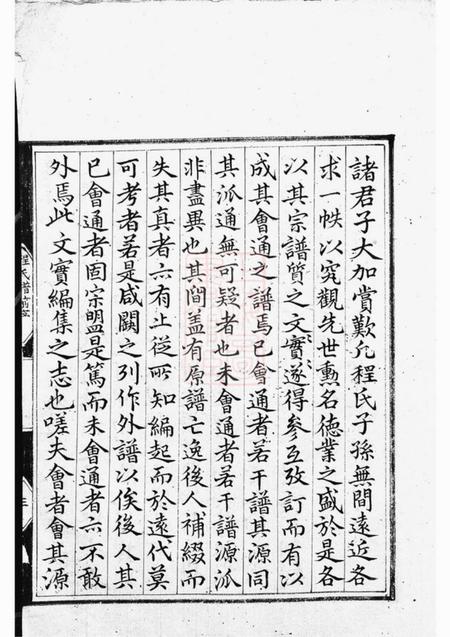 諸君子大加賞歎凢程氏子孫無間遠近各
求一帙以究觀先世勲名德業之盛於是各
以其宗譜質之文實遂得參互攷訂而有以
成其會通之譜焉已會通者若干譜其源同
其派通無可疑者也未會通者若干譜源派
非盡異也其間盖有原譜亡逸後人補綴而
失其真者六有止從所知編起而於遠代莫
可考者若是咸闕之列作外譜以俟後人其
已會通者固宗盟是篤而未會通者六不敢
外焉此文實編集之志也嗟夫會者會其源
程氏譜
三